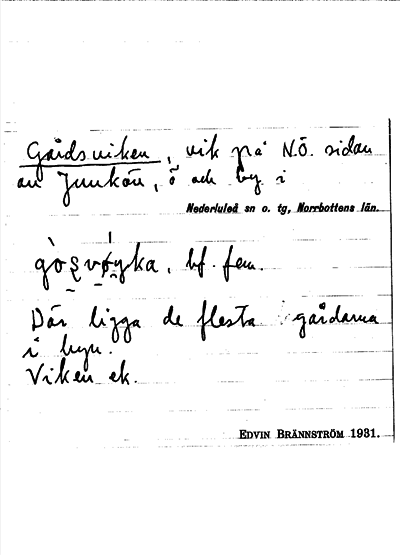 Gårdsviken, vik på N.Ö. sidan
av Junkön, ö och by i
Nederluleå sn o. tg, Norrbottens län.
bf. fem.
Där ligga de flesta gårdarna
i byn.
Viken ek.
EDVIN BRÄNNSTRÖM 1931.